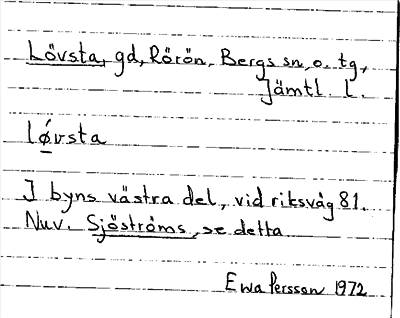 Lövsta, gd, Rörön, Bergs sn, o. tg,
Jämtl. l.
lǿvsta
I byns västra del, vid riksväg 81.
Nuv. Sjöströms, se detta
Ewa Persson 1972